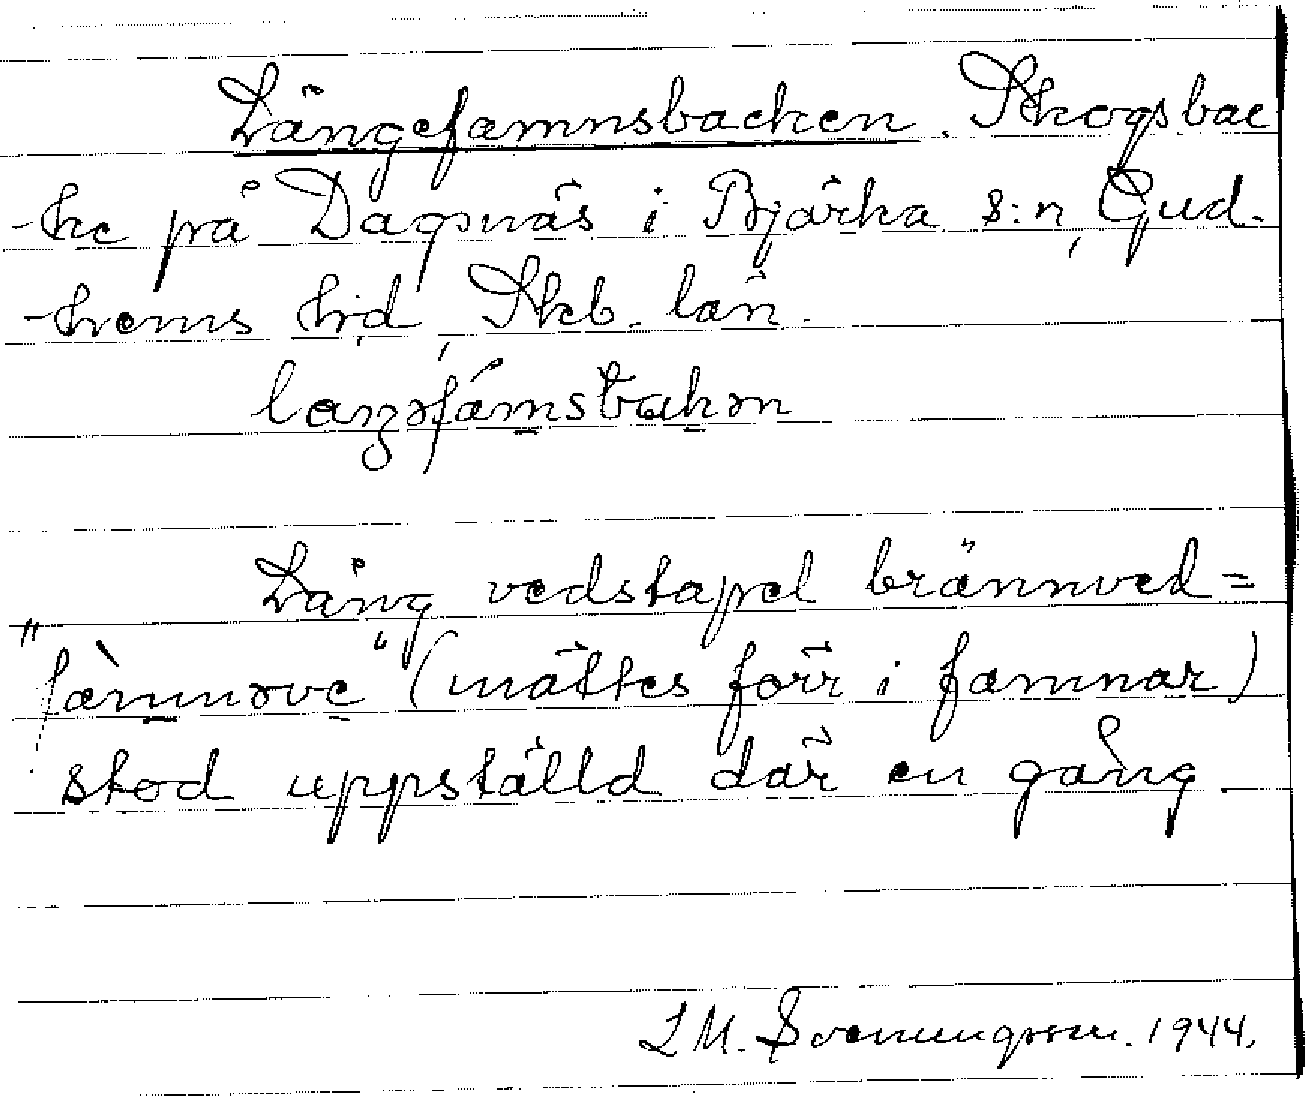 Längefamnsbacken. Skogsbac
-ke på Dagsnäs i Bjärka s:n, Gud-
-hems hd, Skb. län.
laŋəfámsbakən
Lång vedstapel brännved=
"fàmnəve" (mättes förr i famnar)
stod uppställd där en gång
L M. Svenungsson. 1944.